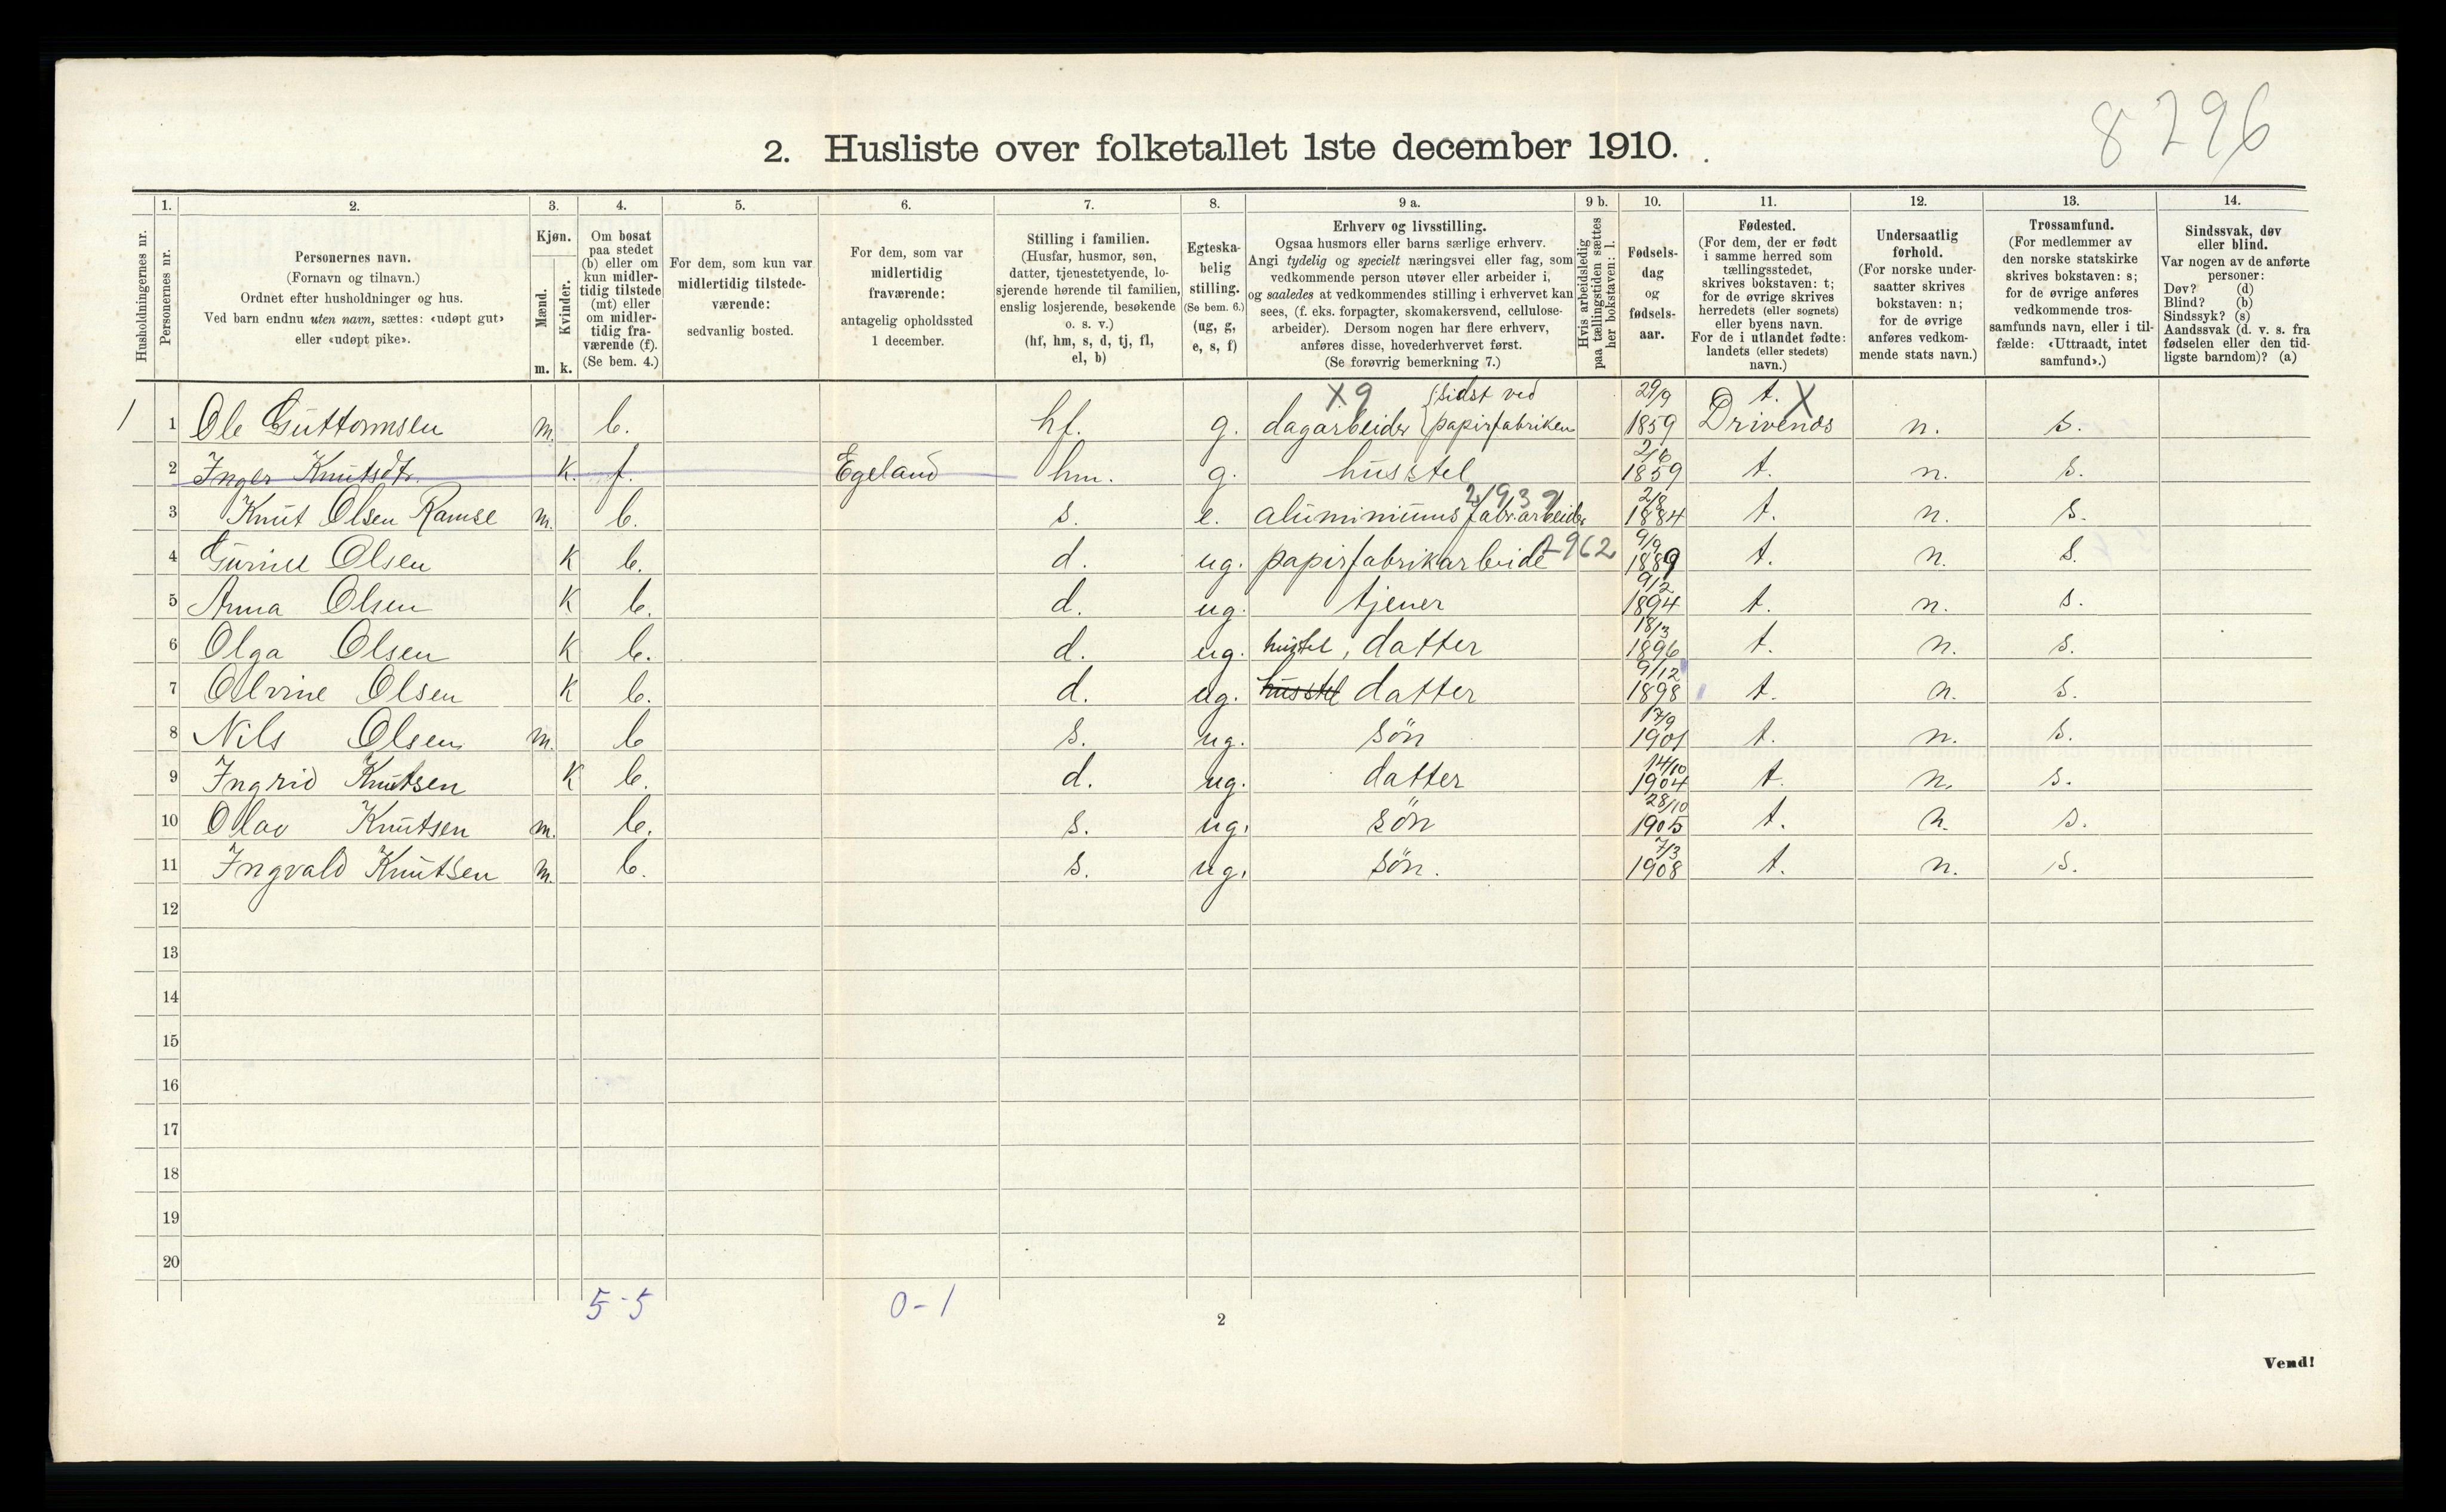 8296
2. Husliste over folketallet 1ste december 1910.
1. 2. 3. 4. 5. 6. 7. 8. 9 a. 9 b. 10. 11. 12. 13. 14.
Husholdningernes nr.
Personernes nr.
Personernes navn.
(Fornavn og tilnavn.)
Ordnet efter husholdninger og hus.
Ved barn endnu uten navn, sættes: «udøpt gut»
eller «udøpt pike».
Kjøn.
Mænd.
Kvinder.
m. k.
Om bosat
paa stedet
(b) eller om
kun midler-
tidig tilstede
(mt) eller
om midler-
tidig fra-
værende (f).
(Se bem. 4.)
For dem, som kun var
midlertidig tilstede-
værende:
sedvanlig bosted.
For dem, som var
midlertidig
fraværende:
antagelig opholdssted
1 december.
Stilling i familien.
(Husfar, husmor, søn,
datter, tjenestetyende, lo-
sjerende hørende til familien,
enslig losjerende, besøkende
o. s. v.)
(hf, hm, s, d, tj, fl,
el, b)
Egteska-
belig
stilling.
(Se bem. 6.)
(ug, g,
e, s, f)
Erhverv og livsstilling.
Ogsaa husmors eller barns særlige erhverv.
Angi tydelig og specielt næringsvei eller fag, som
vedkommende person utøver eller arbeider i,
og saaledes at vedkommendes stilling i erhvervet kan
sees, (f. eks. forpagter, skomakersvend, cellulose-
arbeider). Dersom nogen har flere erhverv,
anføres disse, hovederhvervet først.
(Se forøvrig bemerkning 7.)
Hvis arbeidsledig
paa tællingstiden sættes
her bokstaven: l.
Fødsels-
dag
og
fødsels-
aar.
Fødested.
(For dem, der er født
i samme herred som
tællingsstedet,
skrives bokstaven: t;
for de øvrige skrives
herredets (eller sognets)
eller byens navn.
For de i utlandet fødte:
landets (eller stedets)
navn.)
Undersaatlig
forhold.
(For norske under-
saatter skrives
bokstaven: n;
for de øvrige
anføres vedkom-
mende stats navn.)
Trossamfund.
(For medlemmer av
den norske statskirke
skrives bokstaven: s;
for de øvrige anføres
vedkommende tros-
samfunds navn, eller i til-
fælde: «Uttraadt, intet
samfund».)
Sindssvak, døv
eller blind.
Var nogen av de anførte
personer:
Døv? (d)
Blind? (b)
Sindssyk? (s)
Aandssvak (d. v. s. fra
fødselen eller den tid-
ligste barndom)? (a)
X9 (sidst ved 29/9 t. X
1 1 Ole Guttormsen m. b. hf. g. dagarbeider papirfabriken 1859 Drivenes n. s.
2/6
2 Inger Knutsdtr. k. f. Egeland hm. g. husstel 1859 t. n. s.
2/8
3 Knut Olsen Ramse m. b. s. e. aluminiums fabr.arbeider 1884 t. n. s.
2962 9/9
4 Guriell Olsen k b. d. ug. papirfabrikarbeide 1889 t. n. s.
9/2
5 Anna Olsen k b. d. ug. tjener 1894 t. n. s.
18/3
6 Olga Olsen k b. d. ug. hustel, datter 1896 t. n. s.
9/12
7 Olvine Olsen k b. d. ug. husstel datter 1898 t. n. s.
17/9
8 Nils Olsen m. b s. ug. sön 1901 t. n. s.
14/10
9 Ingrid Knutsen k b. d. ug. datter 1904 t. n. s.
28/10
10 Olav Knutsen m. b. s. ug. sön 1905 t. n. s.
7/3
11 Ingvald Knutsen m. b. s. ug. sön. 1908 t. n. s.
12
13
14
15
16
17
18
19
20
5-5 0-1
2
Vend!